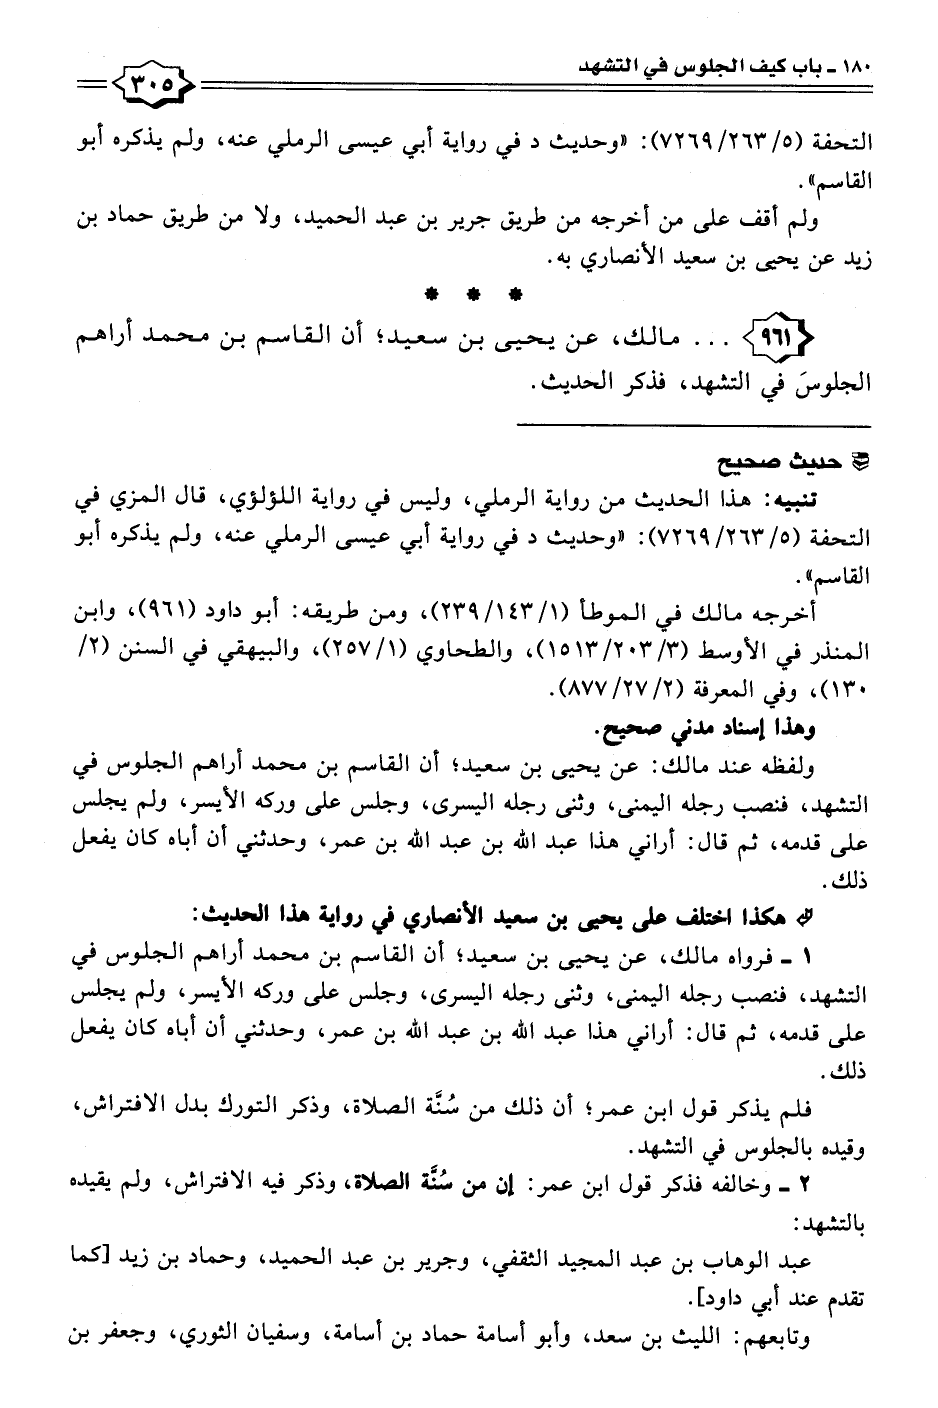 ١٨٠ ـ باب كيف الجلوس في التشهد
٣٠٥
التحفة (٥/ ٢٦٣/ ٧٢٦٩): «وحديث د في رواية أبي عيسى الرملي عنه، ولم يذكره أبو
القاسم».
ولم أقف على من أخرجه من طريق جرير بن عبد الحميد، ولا من طريق حماد بن
زيد عن يحيى بن سعيد الأنصاري به.
* * *
٩٦١ ... مالك، عن يحيى بن سعيد؛ أن القاسم بن محمد أراهم
الجلوسَ في التشهد، فذكر الحديث.
حديث صحيح
تنبيه: هذا الحديث من رواية الرملي، وليس في رواية اللؤلؤي، قال المزي في
التحفة (٥/ ٢٦٣/ ٧٢٦٩): «وحديث د في رواية أبي عيسى الرملي عنه، ولم يذكره أبو
القاسم».
أخرجه مالك في الموطأ (١/ ١٤٣/ ٢٣٩)، ومن طريقه: أبو داود (٩٦١)، وابن
المنذر في الأوسط (٣/ ٢٠٣/ ١٥١٣)، والطحاوي (١/ ٢٥٧)، والبيهقي في السنن (٢/
١٣٠)، وفي المعرفة (٢/ ٢٧/ ٨٧٧).
وهذا إسناد مدني صحيح.
ولفظه عند مالك: عن يحيى بن سعيد؛ أن القاسم بن محمد أراهم الجلوس في
التشهد، فنصب رجله اليمنى، وثنى رجله اليسرى، وجلس على وركه الأيسر، ولم يجلس
على قدمه، ثم قال: أراني هذا عبد الله بن عبد الله بن عمر، وحدثني أن أباه كان يفعل
ذلك.
هكذا اختلف على يحيى بن سعيد الأنصاري في رواية هذا الحديث:
١ ـ فرواه مالك، عن يحيى بن سعيد؛ أن القاسم بن محمد أراهم الجلوس في
التشهد، فنصب رجله اليمنى، وثنى رجله اليسرى، وجلس على وركه الأيسر، ولم يجلس
على قدمه، ثم قال: أراني هذا عبد الله بن عبد الله بن عمر، وحدثني أن أباه كان يفعل
ذلك.
فلم يذكر قول ابن عمر؛ أن ذلك من سُنَّة الصلاة، وذكر التورك بدل الافتراش،
وقيده بالجلوس في التشهد.
٢ ـ وخالفه فذكر قول ابن عمر: إن من سُنَّة الصلاة، وذكر فيه الافتراش، ولم يقيده
بالتشهد:
عبد الوهاب بن عبد المجيد الثقفي، وجرير بن عبد الحميد، وحماد بن زيد [كما
تقدم عند أبي داود].
وتابعهم: الليث بن سعد، وأبو أسامة حماد بن أسامة، وسفيان الثوري، وجعفر بن